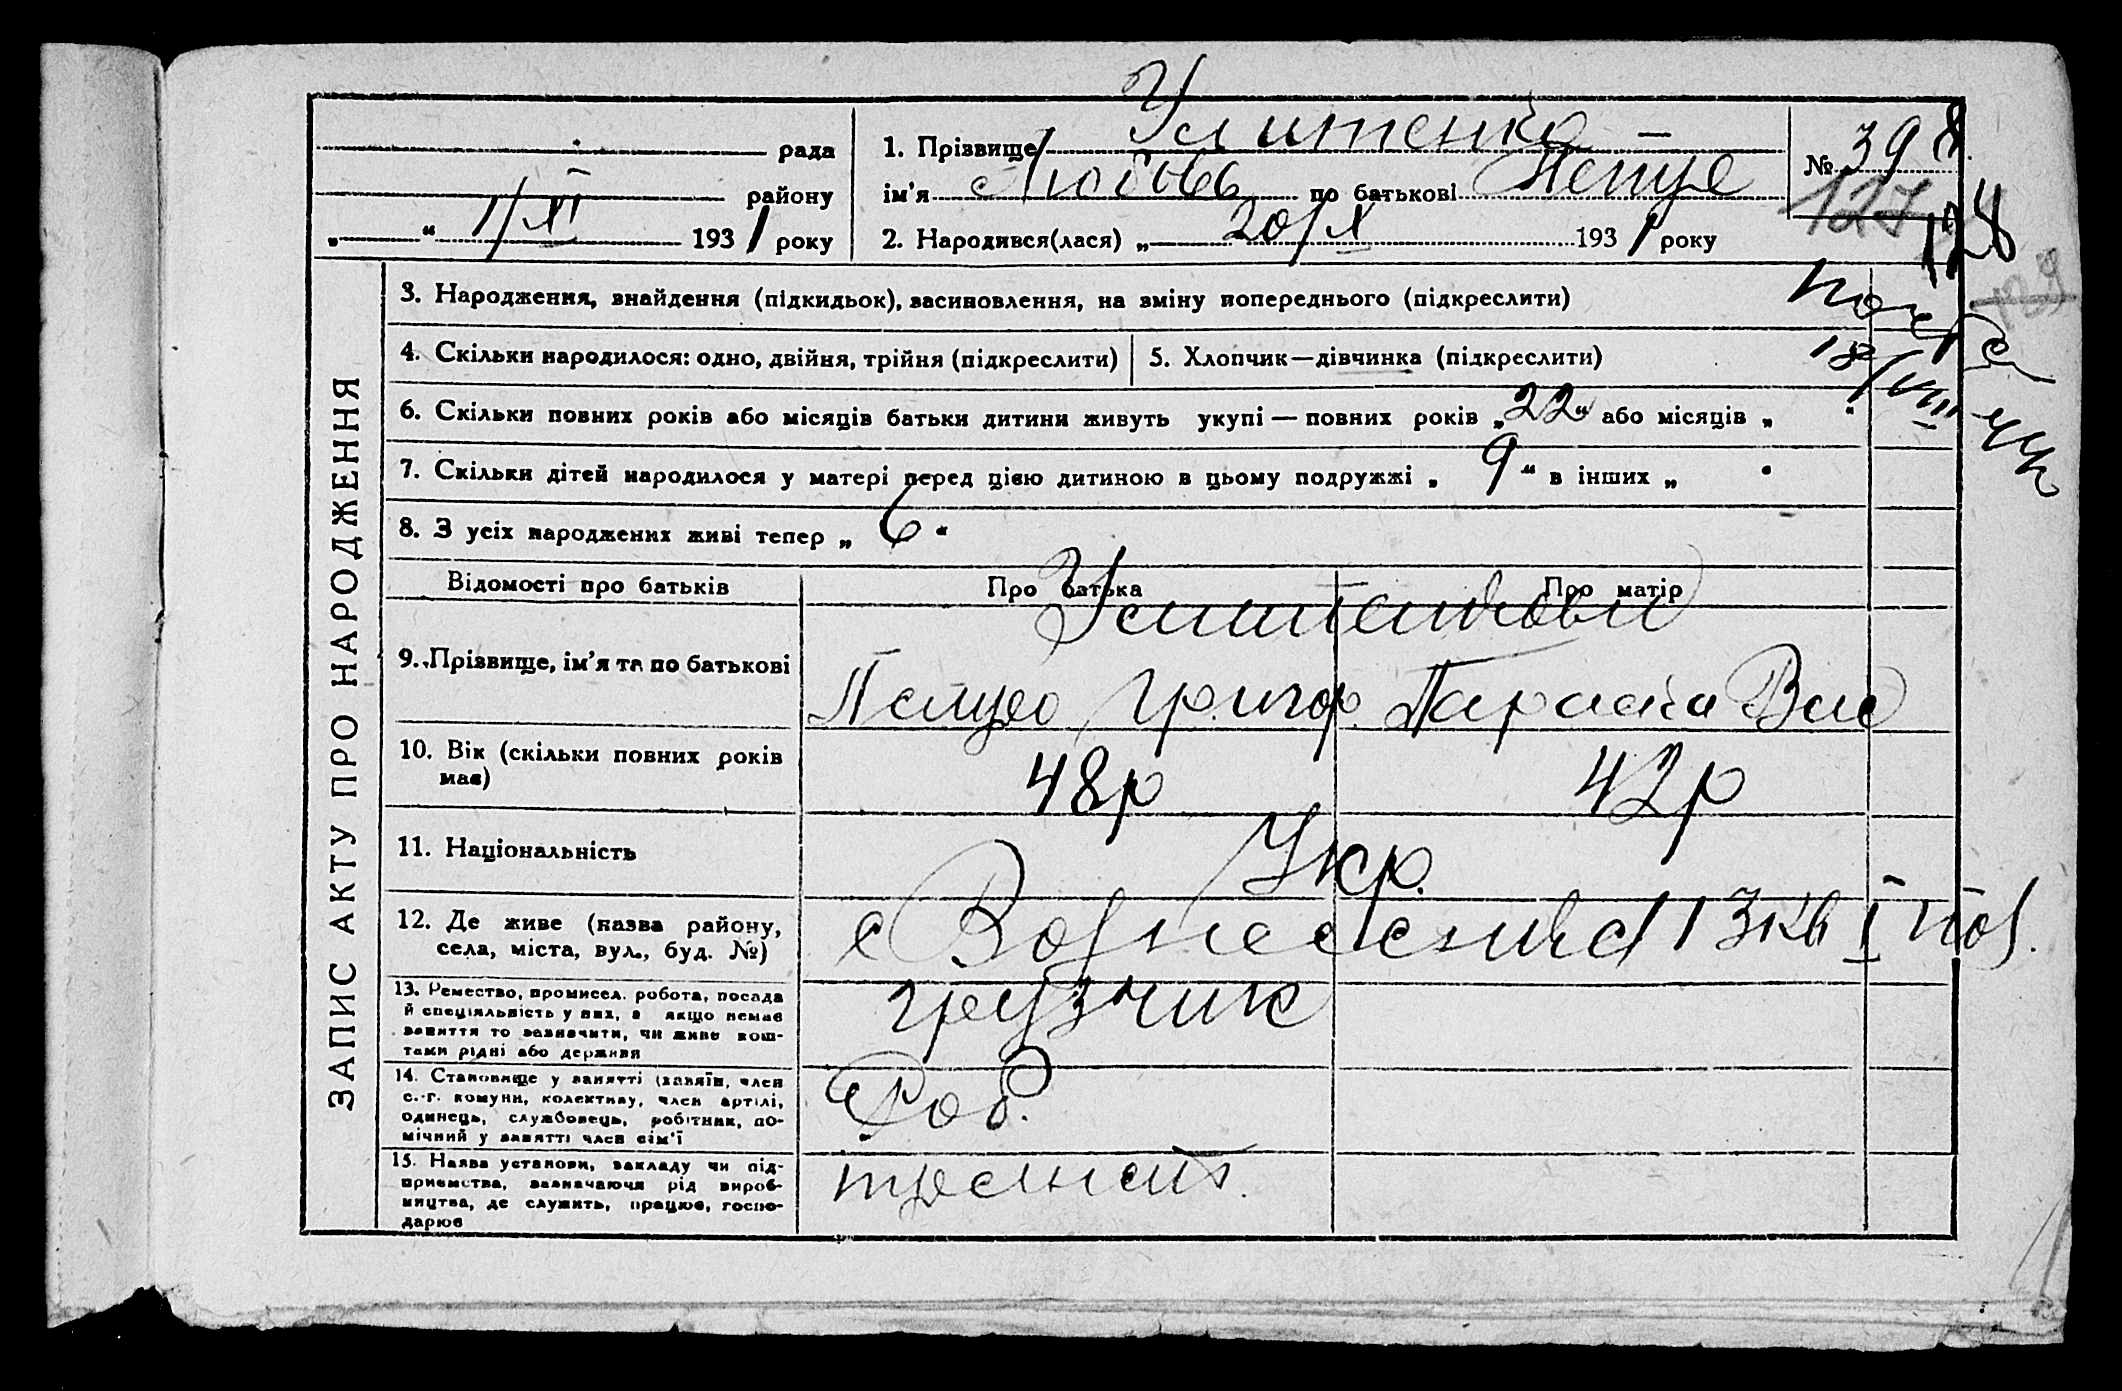 рада
району
„ “ 1/XI 1931 року
1. Прізвище Уситенко
ім'я Любовь по батькові
2. Народився(лася) „ 20/X 1931 року
№ 398
127 128
129
18/VIII
ЗАПИС АКТУ ПРО НАРОДЖЕННЯ
3. Народження, знайдення (підкидьок), засиновлення, на зміну попереднього (підкреслити)
4. Скільки народилося: одно, двійня, трійня (підкреслити)
5. Хлопчик—дівчинка (підкреслити)
6. Скільки повних років або місяців батьки дитини живуть укупі — повних років „22“ або місяців „ “
7. Скільки дітей народилося у матері перед цією дитиною в цьому подружжі „ 9 “ в інших „
8. З усіх народжених живі тепер „ 6 “
Відомості про батьків
Про батька
Про матір
9. Прізвище, ім'я та по батькові
Григор. Параска Вас
10. Вік (скільки повних років має)
48р
42р
11. Національність
Укр.
12. Де живе (назва району,
села, міста, вул., буд. №)
с Вознесенка 13кв I пов.
13. Ремество, промисел, робота, посада
й спеціяльність у них, а якщо немає
заняття то зазначити, чи живе кош-
тами рідні або держави
грузчик
14. Становище у занятті (хазяїн, член
с.-г. комуни, колективу, член артілі,
одинець, службовець, робітник, по-
мічний у занятті член сім'ї
Роб.
15. Назва установи, закладу чи під-
приємства, зазначаючи рід вироб-
ництва, де служить, працює, госпо-
дарює